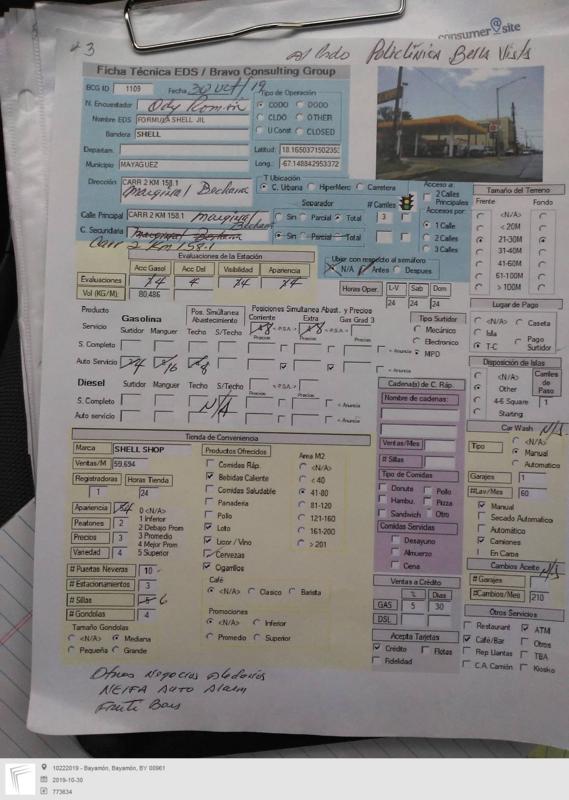 consumer@site
# 3
al lado Policlínica Bella Vista
Ficha Técnica EDS / Bravo Consulting Group
BCG ID 1109 Fecha 30 Oct/19
N. Encuestador Ody Román
Nombre EDS FORMULA SHELL JIL
Bandera SHELL
Tipo de Operación
CODO DODO
CLDO OTHER
U Const CLOSED
Departam.
Municipio MAYAGUEZ
Latitud: 18.165037150235
Long.: -67.148842953372
Dirección CARR 2 KM 158.1
Marginal Bechara
T Ubicación
C. Urbana HiperMerc Carretera
Calle Principal CARR 2 KM 158.1 Marginal Bechara
C. Secundaria Marginal Bechara
Carr 2 Km 158.1
Separador # Carriles
Sin Parcial Total 3
Sin Parcial Total
Acceso a
2 Calles Principales
Accesos por:
1 Calle
2 Calles
3 Calles
Ubic con respecto al semáforo
N/A Antes Despues
Tamaño del Terreno
Frente Fondo
<N/A>
< 20M
21-30M
31-40M
41-60M
61-100M
> 100M
Evaluaciones de la Estación
Acc Gasol Acc Dsl Visibilidad Apariencia
Evaluaciones 4 4 4 4
Vol (KG/M): 80,486
Horas Oper. L-V Sab Dom
24 24 24
Lugar de Pago
<N/A> Caseta
Isla
T-C Pago Surtidor
Producto Gasolina
Servicio Surtidor Manguer
Pos. Simultánea Abastecimiento
Techo S/Techo
Posiciones Simultánea Abast. y Precios
Corriente Extra Gas Grad 3
8 <-P.S.A.-> 8 <-P.S.A.->
Precios Precios Precios
S. Completo <- Anuncia
Auto Servicio 4 16 8 <- Anuncia
Tipo Surtidor
Mecánico
Electronico
MPD
Diesel Surtidor Manguer Techo S/Techo
Precios Precios
S. Completo N/A <- Anuncia
Auto servicio <- Anuncia
Disposición de Islas
<N/A>
Other
4-6 Square
Starting
Carriles de Paso
1
Cadena(s) de C. Ráp.
Nombre de cadenas:
Ventas/Mes
# Sillas
Tipo de Comidas
Donute Pollo
Hambu. Pizza
Sandwich Otro
Comidas Servidas
Desayuno
Almuerzo
Cena
Ventas a Crédito
% Dias
GAS 5 30
DSL
Acepta Tarjetas
Crédito Flotas
Fidelidad
Car Wash N/A
Tipo <N/A>
Manual
Automatico
Garajes 1
#Lav/Mes 60
Manual
Secado Automatico
Automático
Camiones
En Carpa
Cambios Aceite N/A
# Garajes
#Cambios/Mes 210
Otros Servicios
Restaurant ATM
Café/Bar Otros
Rep Llantas TBA
C.A. Camión Kiosko
Tienda de Conveniencia
Marca SHELL SHOP
Ventas/M 59,694
Registradoras Horas Tienda
1 24
Apariencia 4
Peatones 2
Precios 3
Variedad 4
0 <N/A>
1 Inferior
2 Debajo Prom
3 Promedio
4 Mejor Prom
5 Superior
# Puertas Neveras 10
# Estacionamientos 3
# Sillas 5 6
# Gondolas 4
Tamaño Gondolas
<N/A> Mediana
Pequeña Grande
Productos Ofrecidos
Comidas Ráp.
Bebidas Caliente
Comidas Saludable
Panaderia
Pollo
Loto
Licor / Vino
Cervezas
Cigarrilos
Café
<N/A> Clasico Barista
Promociones
<N/A> Inferior
Promedio Superior
Area M2
<N/A>
< 40
41-80
81-120
121-160
161-200
> 201
Otros Negocios Aledaños
NEIFA Auto Alarm
Frute Bars
10222019 - Bayamón, Bayamón, BY 00961
2019-10-30
773634